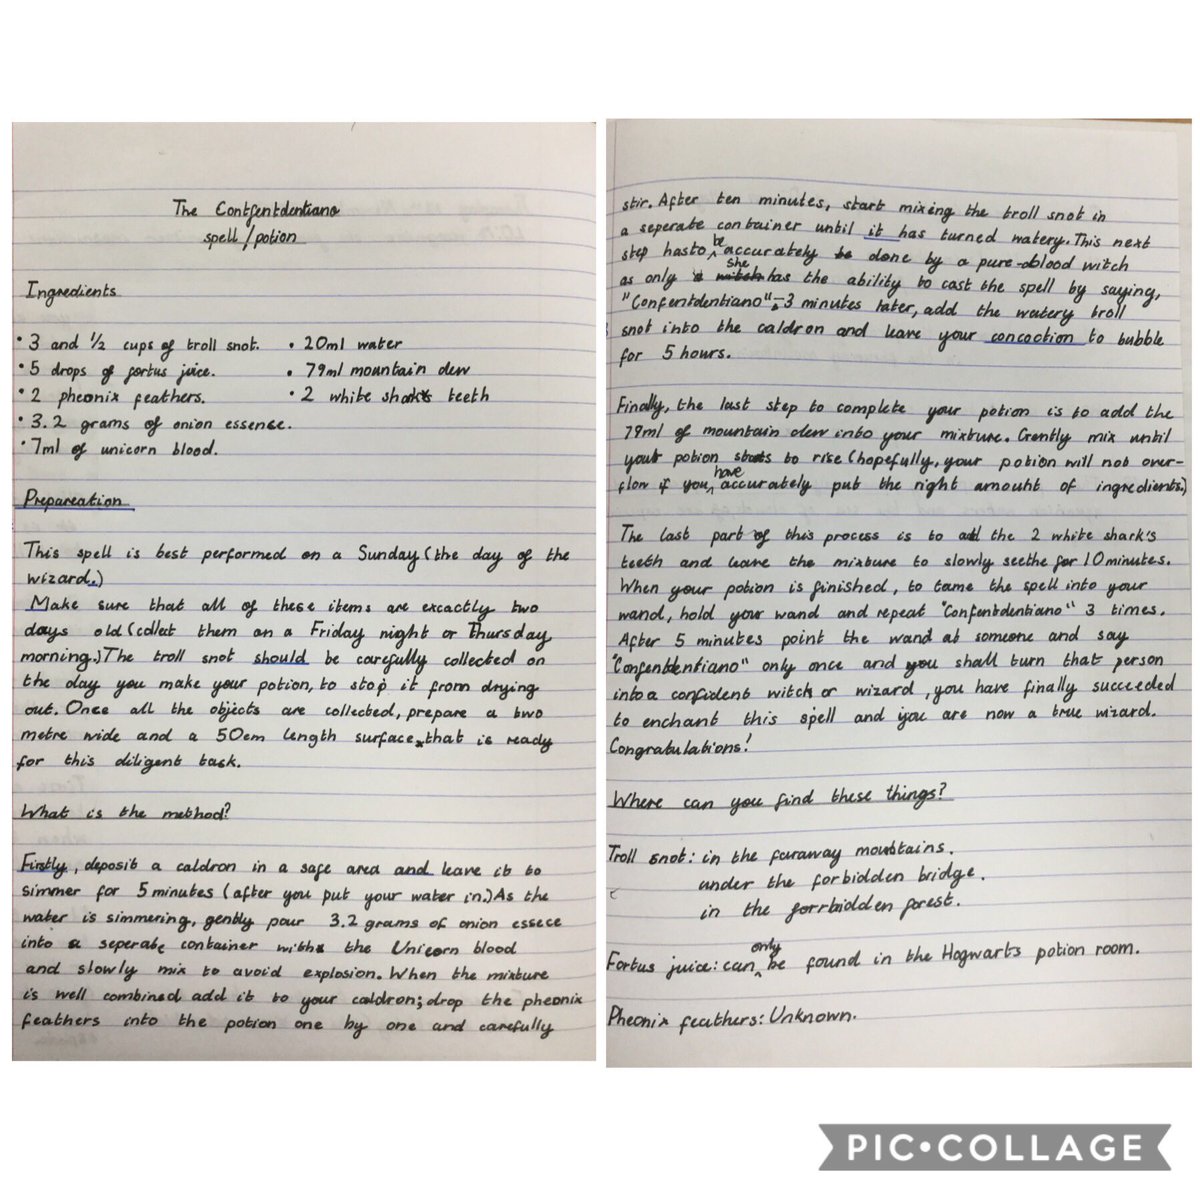 The Contfentdentiano
spell/potion
Ingredients
• 3 and 1/2 cups of troll snot.
• 5 drops of fortus juice.
• 2 pheonix feathers.
• 3.2 grams of onion essense.
• 7ml of unicorn blood.
• 20ml water
• 79ml mountain dew
• 2 white shark teeth
Prepareation
This spell is best performed on a Sunday (the day of the
wizard.)
Make sure that all of these items are excactly two
days old (collect them on a Friday night or Thursday
morning.) The troll snot should be carefully collected on
the day you make your potion, to stop it from drying
out. Once all the objects are collected, prepare a two
metre wide and a 50cm length surface that is ready
for this diligent task.
What is the method?
Firstly, deposit a caldron in a safe area and leave it to
simmer for 5 minutes (after you put your water in.) As the
water is simmering, gently pour 3.2 grams of onion essece
into a seperate container with the Unicorn blood
and slowly mix to avoid explosion. When the mixture
is well combined add it to your caldron; drop the pheonix
feathers into the potion one by one and carefully
stir. After ten minutes, start mixing the troll snot in
a seperate container until it has turned watery. This next
step hasto be accurately done by a pure-blood witch
as only she has the ability to cast the spell by saying,
"Confentdentiano". 3 minutes later, add the watery troll
snot into the caldron and leave your concoction to bubble
for 5 hours.
Finally, the last step to complete your potion is to add the
79ml of mountain dew into your mixture. Gently mix until
your potion starts to rise (hopefully, your potion will not over-
flow if you have accurately put the right amount of ingredients.)
The last part of this process is to add the 2 white shark's
teeth and leave the mixture to slowly seethe for 10 minutes.
When your potion is finished, to tame the spell into your
wand, hold your wand and repeat "Confentdentiano" 3 times.
After 5 minutes point the wand at someone and say
"Confentdentiano" only once and you shall turn that person
into a confident witch or wizard, you have finally succeeded
to enchant this spell and you are now a true wizard.
Congratulations!
Where can you find these things?
Troll snot: in the faraway mountains.
under the forbidden bridge.
in the forrbidden forest.
Fortus juice: can only be found in the Hogwarts potion room.
Pheonix feathers: Unknown.
PIC•COLLAGE